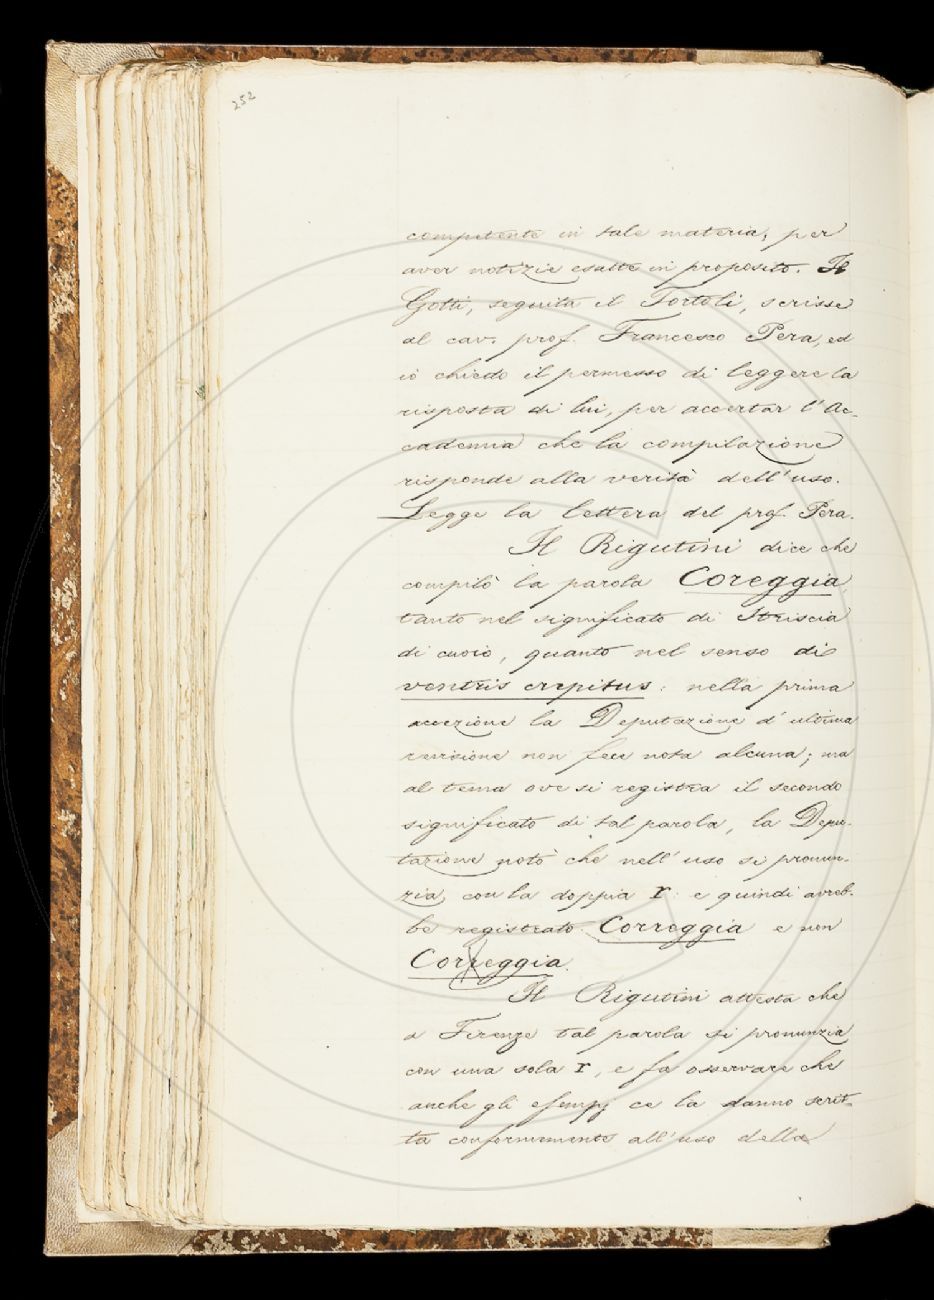 252
competente in tale materia, per
aver notizie esatte in proposito. Il
Gotti, seguita il Tortoli, scrisse
al cav. prof. Francesco Pera, ed
io chiedo il permesso di leggere la
risposta di lui, per accertar l'Ac-
cademia che la compilazione
risponde alla verità dell'uso.
Legge la lettera del prof. Pera.
Il Rigutini dice che
compilò la parola Coreggia
tanto nel significato di Striscia
di cuoio, quanto nel senso di
ventris crepitus: nella prima
accezione la Deputazione d'ultima
revisione non fece nota alcuna; ma
al tema ove si registra il secondo
significato di tal parola, la Depu-
tazione notò che nell'uso si pronun-
zia, con la doppia r: e quindi avreb-
be registrato Correggia e non
Correggia.
Il Rigutini attesta che
a Firenze tal parola si pronunzia
con una sola r, e fa osservare che
anche gli esempj ce la danno scrit-
ta conformemente all'uso della